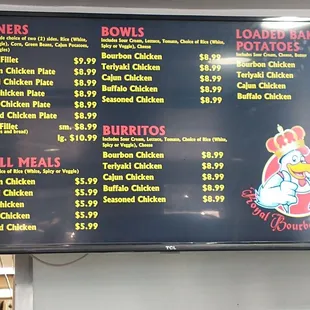 NERS
choice of two (2) sides. Rice (White,
Corn, Green Beans, Cajun Potatoes,
Fillet $9.99
n Chicken Plate $8.99
Chicken Plate $8.99
Chicken Plate $8.99
Chicken Plate $8.99
d Chicken Plate $8.99
Fillet sm. $8.99
and bread) lg. $10.99
LL MEALS
of Rice (White,
Spicy or Veggie)
n Chicken $5.99
Chicken $5.99
hicken $5.99
Chicken $5.99
d Chicken $5.99
BOWLS
Includes Sour Cream, Lettuce, Tomato, Choice of Rice (White,
Spicy or Veggie), Cheese
Bourbon Chicken $8.99
Teriyaki Chicken $8.99
Cajun Chicken $8.99
Buffalo Chicken $8.99
Seasoned Chicken $8.99
BURRITOS
Includes Sour Cream, Lettuce, Tomato, Choice of Rice (White,
Spicy or Veggie), Cheese
Bourbon Chicken $8.99
Teriyaki Chicken $8.99
Cajun Chicken $8.99
Buffalo Chicken $8.99
Seasoned Chicken $8.99
LOADED BAK
POTATOES
Includes Sour Cream, Cheese, Butter
Bourbon Chicken
Teriyaki Chicken
Cajun Chicken
Buffalo Chicken
Royal Bourbo
TCL